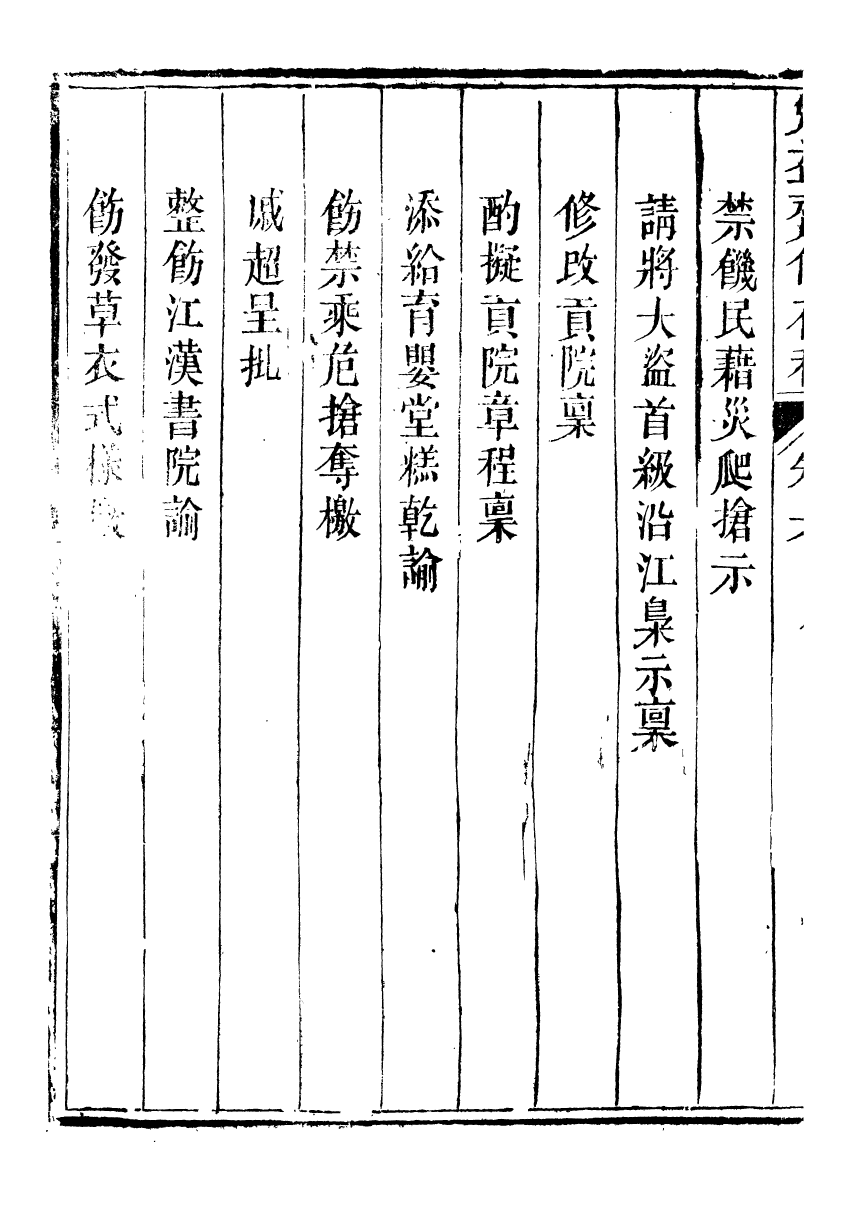 禁饑民藉災爬搶示
請將大盜首級沿江梟示稟
修改貢院稟
酌擬貢院章程稟
添給育嬰堂糕乾諭
飭禁乘危搶奪檄
戚超呈批
整飭江漢書院諭
飭發草衣式樣檄